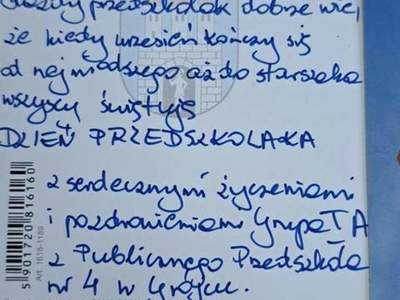 Każdy przedszkolak dobrze wie,
że kiedy wrzesień kończy się
od najmłodszego aż do starszaka
wszyscy świętują
DZIEŃ PRZEDSZKOLAKA
z serdecznymi życzeniami
i pozdrowieniami Grupa TA
z Publicznego Przedszkola
nr 4 w
5 901720 816160
Art. 1616-1189